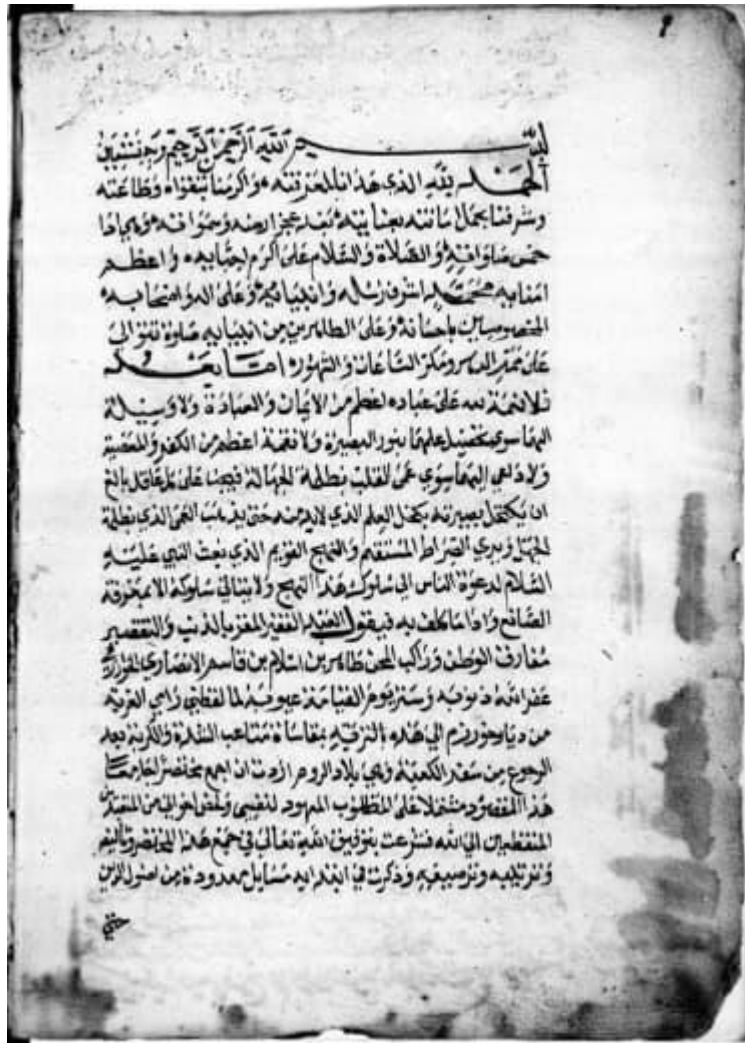 بسم الله الرحمن الرحيم وبه نستعين
الحمد لله الذي هدانا لمعرفته واكرمنا بتقواه وطاعته
وشرفنا بحمل امانته بعنايته بعد عجز ارضه وسمواته
والصلاة والسلام على اكرم احبابه واعظم
امنايه محمد اشرف رسله وانبيائه وعلى اله واصحابه
المخصوصين باحسانه وعلى الطاهرين من انبيايه صلوة تتوالى
على ممر الدهر ومكر الساعات والشهور اما بعد
فلا نعمة لله على عباده اعظم من الايمان والعبادة ولا وسيلة
اليهما سوى تحصيل علمهما بنور البصيرة ولا نقمة اعظم من الكفر والمعصية
ولا داعي اليهما سوى عمى القلب بظلمة الجهالة فيجب على كل عاقل بالغ
ان يكتحل بصيرته بكحل العلم الذي لابد منه حتى يذهب العمى الذي بظلمة
الجهل ويرى الصراط المستقيم والنهج القويم الذي بعث النبي عليه
السلام لدعوة الناس الى سلوك هذا النهج ولا يتاتى سلوكه الا بمعرفة
الصانع واداء ما كلف به فيقول العبد الفقير المقر بالذنب والتقصير
مفارق الوطن وراكب المحن طاهر بن اسلام بن قاسم الانصاري
غفر الله ذنوبه وستر يوم القيامة عيوبه لما لفظني رامي الغربة
من ديار خورزم الى هذه التربة بمقاساة متاعب الشدة والكربة بعد
الرجوع من سفر الكعبة وهي بلاد الروم اردت ان اجمع مختصرا جامعا
هذا المقصود مشتملا على المطلوب المعهود لنفسي ولبعض اخواني من
المنقطعين الى الله فشرعت بتوفيق الله تعالى في جمع هذا المختصر وتاليفه
وترتيبه وترصيفه وذكرت في ابتدايه مسايل معدودة من اصول الدين
حتى